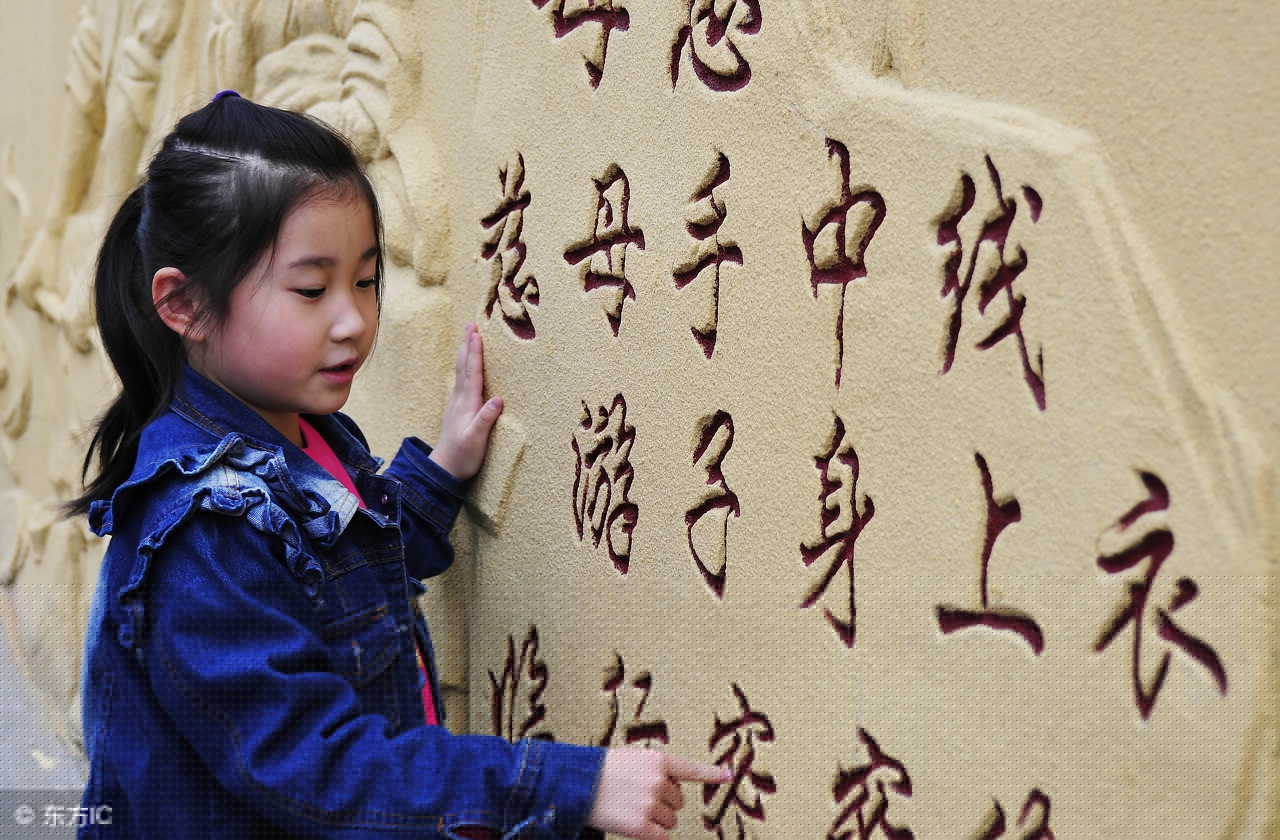 慈母手中线
游子身上衣
临行密密
© 东方IC